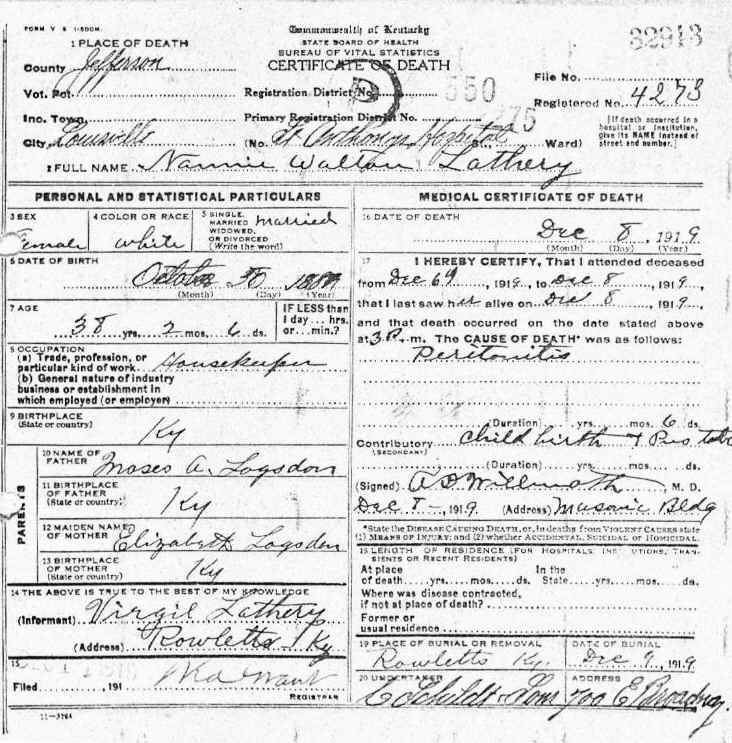 FORM V S 1-50M
Commonwealth of Kentucky
STATE BOARD OF HEALTH
BUREAU OF VITAL STATISTICS
CERTIFICATE OF DEATH
32913
1 PLACE OF DEATH
County Jefferson
Vot. Pct.
Inc. Town,
City, Louisville
Registration District No. 550
Primary Registration District No.
(No. St Anthonys Hospital St., Ward)
File No.
Registered No. 4273
[If death occurred in a hospital or institution, give its NAME instead of street and number.]
2 FULL NAME Nannie Walton Lathery
PERSONAL AND STATISTICAL PARTICULARS
3 SEX
Female
4 COLOR OR RACE
White
5 SINGLE, MARRIED WIDOWED, OR DIVORCED (Write the word)
Married
6 DATE OF BIRTH
October
(Month) (Day) (Year)
7 AGE
38 yrs. 2 mos. 6 ds.
IF LESS than 1 day... hrs. or... min.?
8 OCCUPATION
(a) Trade, profession, or particular kind of work Housekeeper
(b) General nature of industry business or establishment in which employed (or employer)
9 BIRTHPLACE
(State or country)
Ky
PARENTS
10 NAME OF FATHER
Moses A. Logsdon
11 BIRTHPLACE OF FATHER
(State or country)
Ky
12 MAIDEN NAME OF MOTHER
Elizabeth Logsdon
13 BIRTHPLACE OF MOTHER
(State or country)
Ky
14 THE ABOVE IS TRUE TO THE BEST OF MY KNOWLEDGE
(Informant) Virgil Lathery
(Address) Rowletts Ky
15
Filed, 191
REGISTRAR
11-3784
MEDICAL CERTIFICATE OF DEATH
16 DATE OF DEATH
Dec 8, 1919
(Month) (Day) (Year)
17 I HEREBY CERTIFY, That I attended deceased
from Dec 1919, to Dec 8, 1919,
that I last saw her alive on Dec 8, 1919
and that death occurred on the date stated above
at 3 P. m. The CAUSE OF DEATH* was as follows:
Peritonitis
(Duration) yrs. mos. 6 ds.
Contributory Child birth & Pus tube
(SECONDARY)
(Duration) yrs. mos. ds.
(Signed) A D Willmoth, M. D.
Dec 8-, 1919 (Address) Masonic Bldg
*State the DISEASE CAUSING DEATH, or, in deaths from VIOLENT CAUSES state
(1) MEANS OF INJURY; and (2) whether ACCIDENTAL, SUICIDAL or HOMICIDAL.
18 LENGTH OF RESIDENCE (FOR HOSPITALS, TRANSIENTS OR RECENT RESIDENTS)
At place of death yrs. mos. ds. In the State yrs. mos. ds.
Where was disease contracted,
if not at place of death?
Former or
usual residence
19 PLACE OF BURIAL OR REMOVAL
Rowletts Ky.
DATE OF BURIAL
Dec 9, 1919
20 UNDERTAKER
C Schildt & Sons
ADDRESS
700 E Broadway.